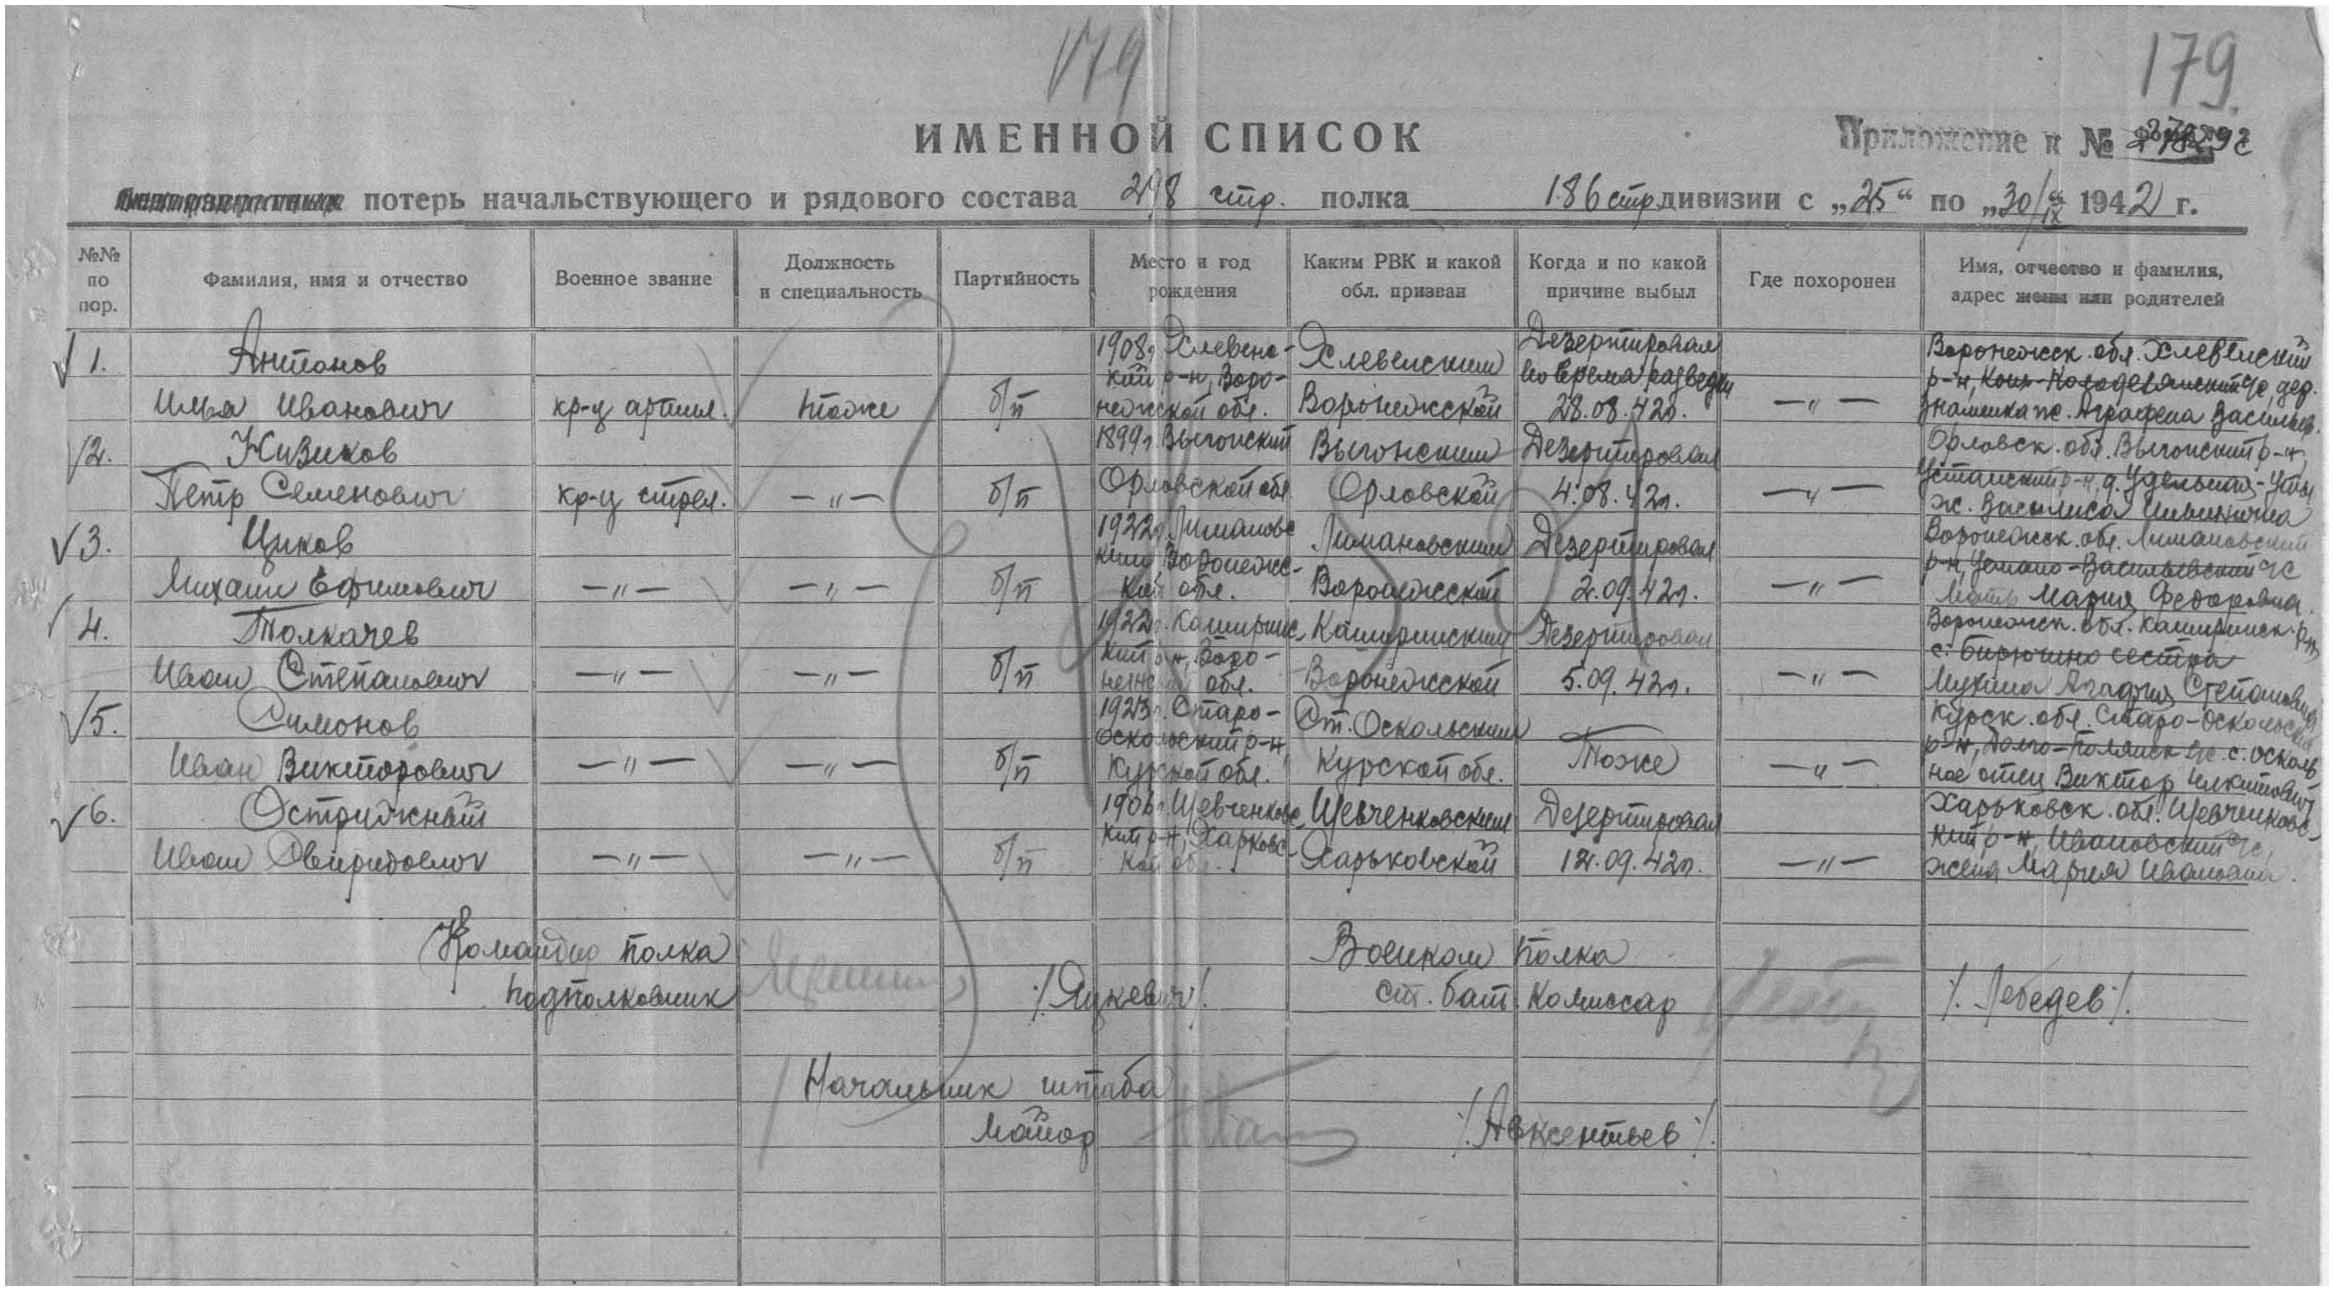 179
179.
ИМЕННОЙ СПИСОК
Приложение к №
потерь начальствующего и рядового состава 298 стр. полка 186 стр. дивизии с „25“ по „30/IX 1942 г.
№№ по пор.
Фамилия, имя и отчество
Военное звание
Должность и специальность
Партийность
Место и год рождения
Каким РВК и какой обл. призван
Когда и по какой причине выбыл
Где похоронен
Имя, отчество и фамилия, адрес жены или родителей
1. Антонов
Илья Иванович
кр-ц артил.
тоже
б/п
1908г. Хлевенс-
кий р-н, Воро-
нежской обл.
Хлевенским
Воронежской
Дезертировал
во время разведки
28.08.42г.
—"—
Воронежск. обл. Хлевенский
р-н, дер.
Знаменка ж. Аграфена Васильев.
2. Кизиков
Петр Семенович
кр-ц стрел.
—"—
б/п
1899г. Выгонский
Орловской обл
Выгонским
Орловской
Дезертировал
4.08.42г.
—"—
Орловск. обл. Выгонский р-н,
ж. Василиса Ильинична
3. Циков
Михаил Ефимович
—"—
—"—
б/п
1922г. Лимановс
кий Воронежс-
кой обл.
Лимановским
Воронежской
Дезертировал
2.09.42г.
—"—
Воронежск. обл. Лимановский
р-н, Васильевский с/с
мать Мария Федоровна.
4. Толкачев
Иван Степанович
—"—
—"—
б/п
1922г. Каширинс
кий р-н, Воро-
нежской обл.
Каширинским
Воронежской
Дезертировал
5.09.42г.
—"—
Воронежск. обл. Каширинск. р-н,
с. Бирючино сестра
Мухина Агафия Степановна
5. Симонов
Иван Викторович
—"—
—"—
б/п
1923г. Старо-
оскольский р-н
Курской обл.
Ст. Оскольским
Курской обл.
Тоже
—"—
Курск. обл. Старо-Оскольский
р-н, Долго-Полянск с/с. с. Осколь
ное отец Виктор Никитович
6. Острижный
Иван Свиридович
—"—
—"—
б/п
1906г. Шевченковс
кий р-н, Харковс-
кой обл.
Шевченковским
Харьковской
Дезертировал
12.09.42г.
—"—
Харьковск. обл. Шевченковс-
кий р-н, Ивановский с/с,
жена Мария Ивановна.
Командир полка
подполковник /Яцкевич/.
Военком полка
ст. бат. Комиссар /Лебедев/.
Начальник штаба
Майор /Авксентьев/.